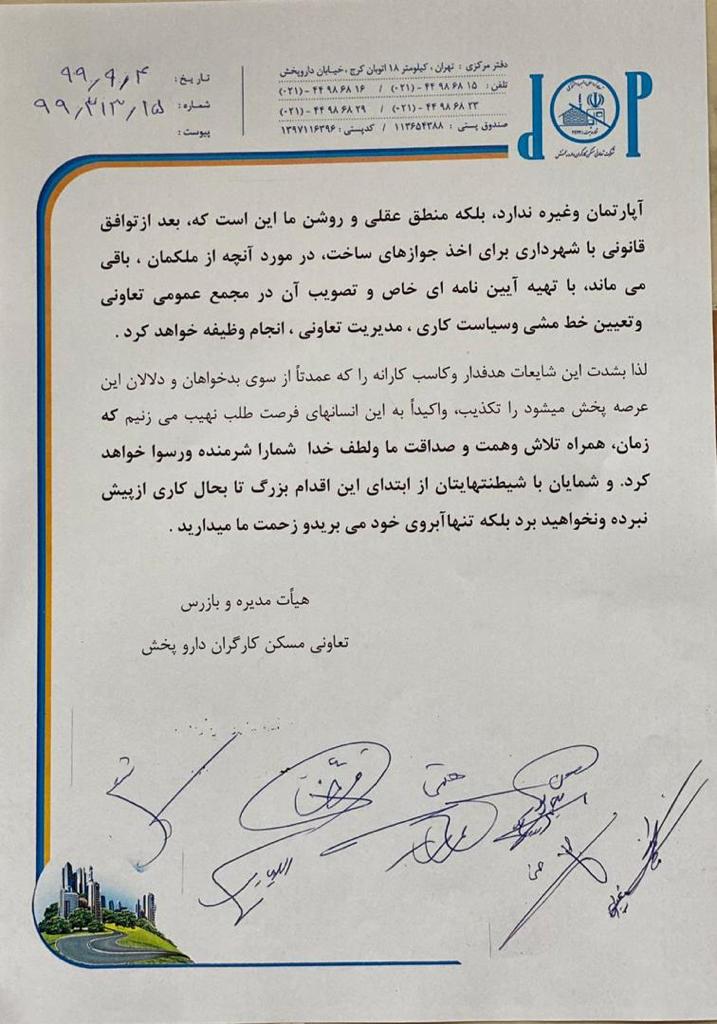 دفتر مرکزی : تهران، کیلومتر ۱۸ اتوبان کرج، خیابان داروپخش
تلفن : ۱۵ ۶۸ ۹۸ ۴۴ - (۰۲۱) / ۱۶ ۶۸ ۹۸ ۴۴ - (۰۲۱)
۲۳ ۶۸ ۹۸ ۴۴ - (۰۲۱) / ۲۹ ۶۸ ۹۸ ۴۴ - (۰۲۱)
صندوق پستی : ۱۱۳۶۵۴۳۸۸ / کدپستی : ۱۳۹۷۱۱۶۳۹۶
تاریخ: ۹۹٫۹٫۴
شماره: ۹۹٫۳۱۳٫۱۵
پیوست:
آپارتمان وغیره ندارد، بلکه منطق عقلی و روشن ما این است که، بعد ازتوافق
قانونی با شهرداری برای اخذ جوازهای ساخت، در مورد آنچه از ملکمان ، باقی
می ماند، با تهیه آیین نامه ای خاص و تصویب آن در مجمع عمومی تعاونی
وتعیین خط مشی وسیاست کاری ، مدیریت تعاونی ، انجام وظیفه خواهد کرد .
لذا بشدت این شایعات هدفدار وکاسب کارانه را که عمدتاً از سوی بدخواهان و دلالان این
عرصه پخش میشود را تکذیب، واکیداً به این انسانهای فرصت طلب نهیب می زنیم که
زمان، همراه تلاش وهمت و صداقت ما ولطف خدا شمارا شرمنده ورسوا خواهد
کرد. و شمایان با شیطنتهایتان از ابتدای این اقدام بزرگ تا بحال کاری ازپیش
نبرده ونخواهید برد بلکه تنهاآبروی خود می بریدو زحمت ما میدارید .
هیأت مدیره و بازرس
تعاونی مسکن کارگران دارو پخش